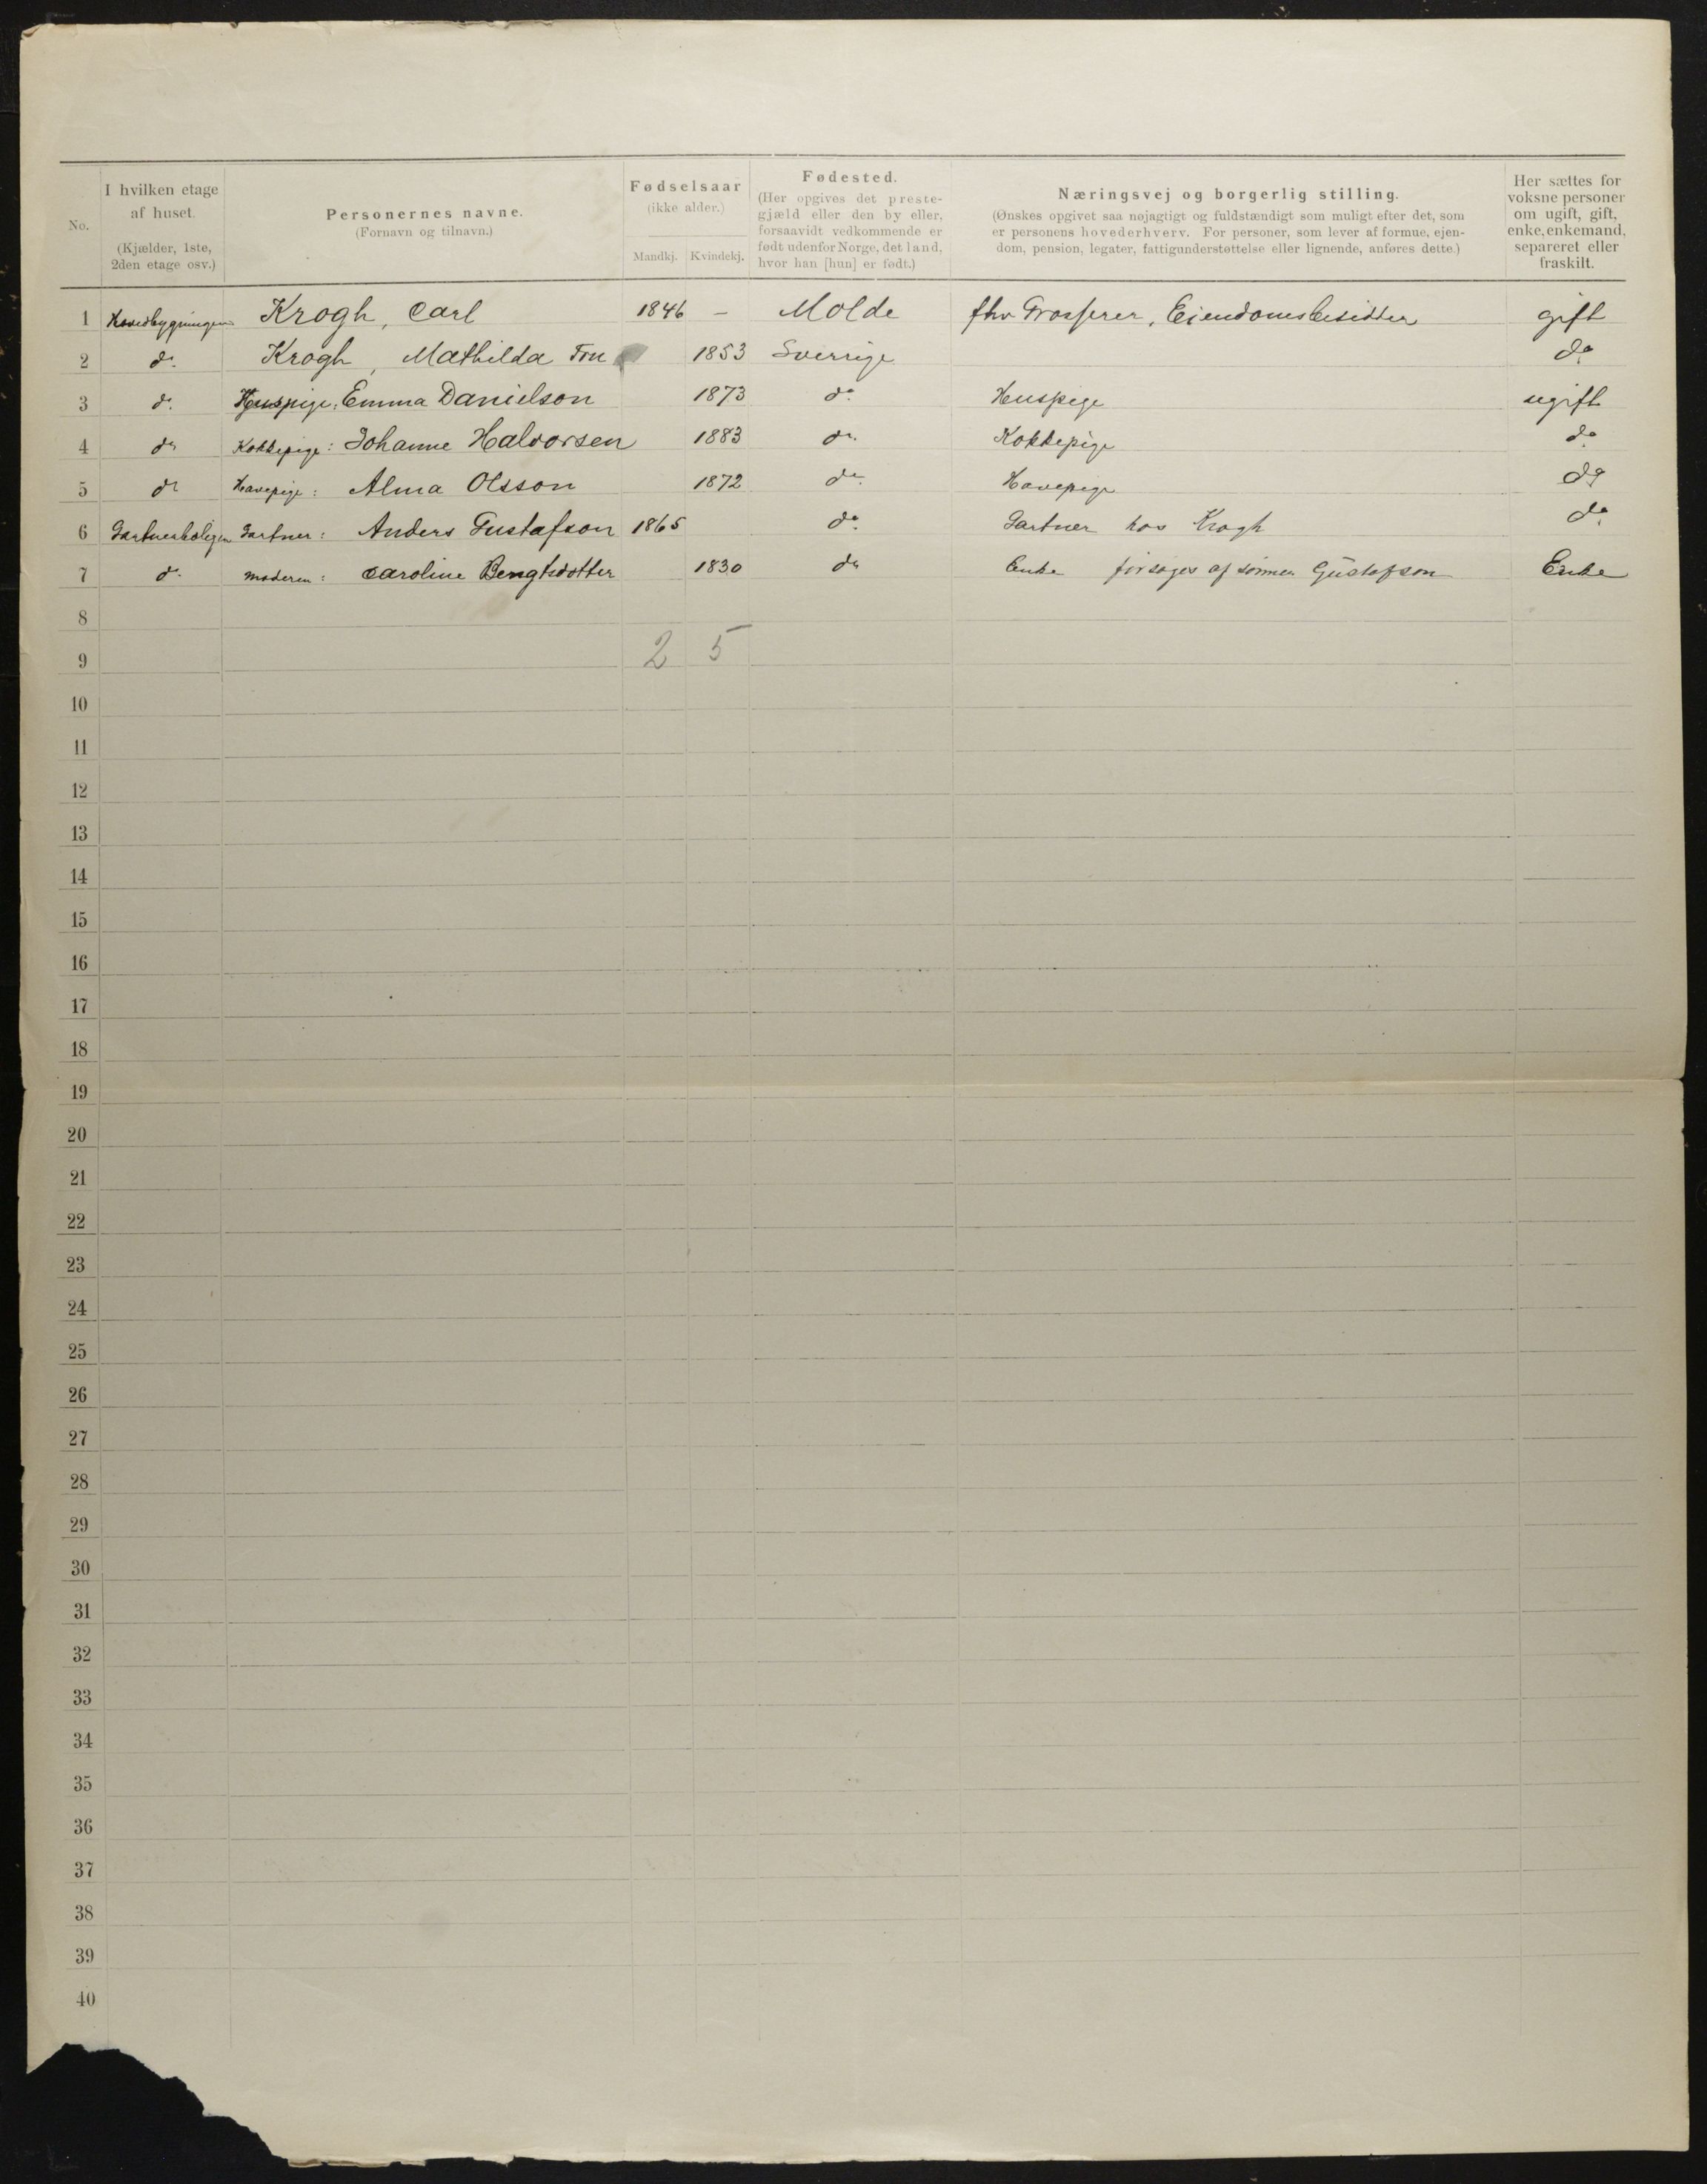 No.
I hvilken etage af huset. (Kjælder, 1ste, 2den etage osv.)
Personernes navne. (Fornavn og tilnavn.)
Fødselsaar (ikke alder.) Mandkj. Kvindekj.
Fødested. (Her opgives det prestegjæld eller den by eller, forsaavidt vedkommende er født udenfor Norge, det land, hvor han [hun] er født.)
Næringsvej og borgerlig stilling.
(Ønskes opgivet saa nøjagtigt og fuldstændigt som muligt efter det, som
er personens hovederhverv. For personer, som lever af formue, ejen-
dom, pension, legater, fattigunderstøttelse eller lignende, anføres dette.)
Her sættes for voksne personer om ugift, gift, enke, enkemand, separeret eller fraskilt.
1 Hovedbygningen Krogh, Carl 1846 – Molde fhv Grosserer, Eiendomsbesidder gift
2 do. Krogh, Mathilda Fru 1853 Sverrige do.
3 do. Huspige: Emma Danielson 1873 do. Huspige ugift
4 do Kokkepige: Johanne Halvorsen 1883 do. Kokkepige do.
5 do Havepige: Alma Olsson 1872 do. Havepige do
6 Gartnerboligen Gartner: Anders Gustafson 1865 do. Gartner hos Krogh do.
7 do. moderen: Caroline Bengtsdotter 1830 do Enke forsøges af sønnen Gustafson Enke
8
9 2 5
10
11
12
13
14
15
16
17
18
19
20
21
22
23
24
25
26
27
28
29
30
31
32
33
34
35
36
37
38
39
40